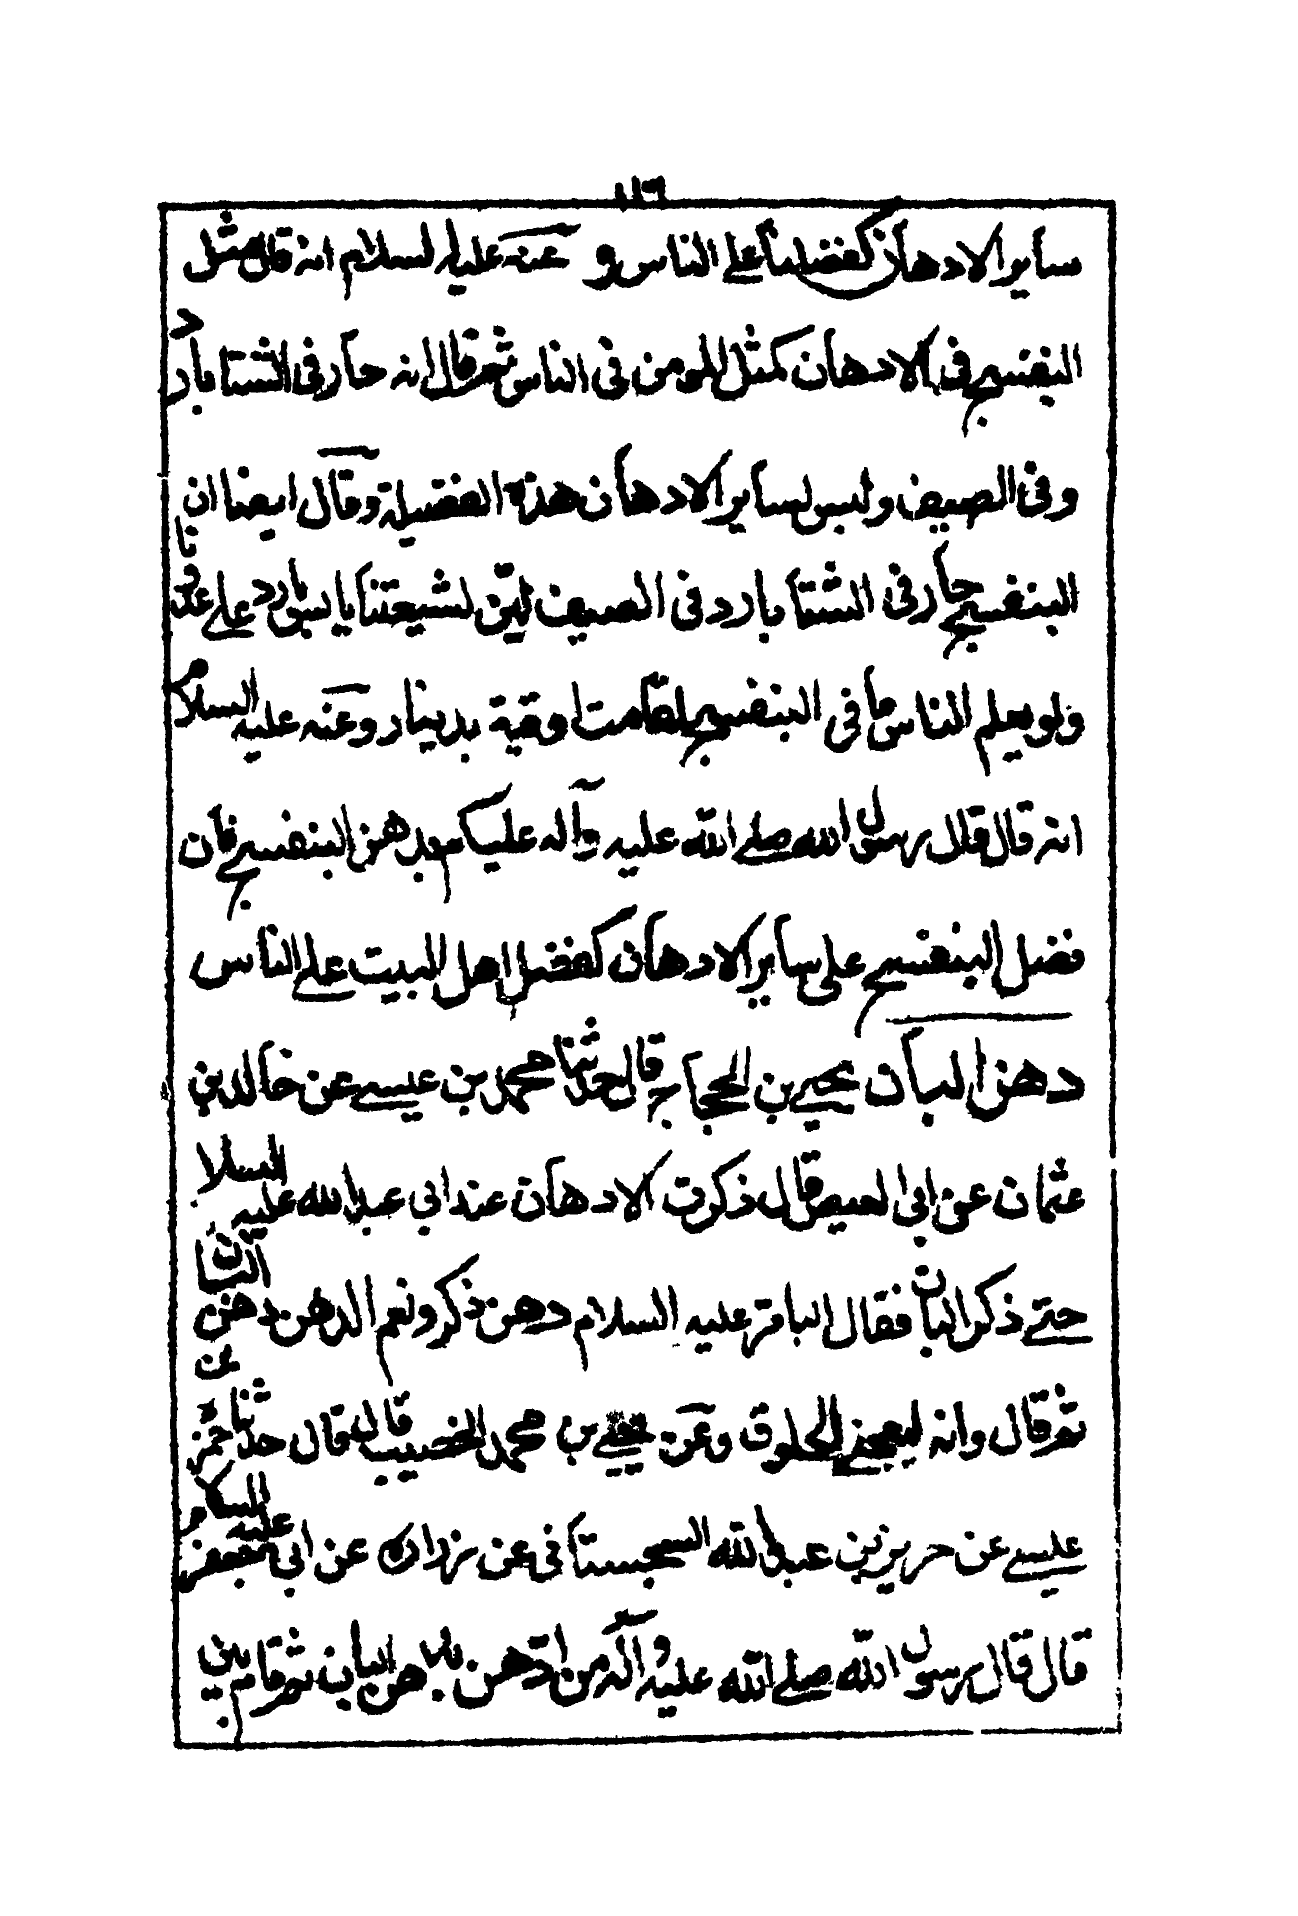 ١١٦
ساير الادهان كفضلنا على الناس و عنه عليه السلام انه قال مثل
البنفسج فى الادهان كمثل المومن فى الناس ثم قال انه حار فى الشتا بارد
وفى الصيف وليس لساير الادهان هذه الفضيلة وقال ايضا ان
البنفسج حار فى الشتا بارد فى الصيف ليّن لشيعتنا يابس بارد على عدونا
ولو يعلم الناس ما فى البنفسج لقامت اوقية بدينار وعنه عليه السلام
انه قال قال رسول الله صلى الله عليه وآله عليكم بدهن البنفسج فان
فضل البنفسج على ساير الادهان كفضل اهل البيت على الناس
دهن البان يحيى بن الحجاج قال حدثنا محمد بن عيسى عن خالد بن
عثمان عن ابى العيص قال ذكرت الادهان عند ابي عبد الله عليه السلام
حتى ذكر البان فقال الباقر عليه السلام دهن ذكر ونعم الدهن دهن البان
ثم قال وانه ليعجبنى الخلوق وعن يحيى بن محمد الخصيب قال قال حدثنا حمزة عن
عيسى عن حريز بن عبد الله السجستانى عن زرارة عن ابى جعفر عليه السلام
قال قال رسول الله صلى الله عليه وآله من ادّهن بدهن البان ثم قام بين